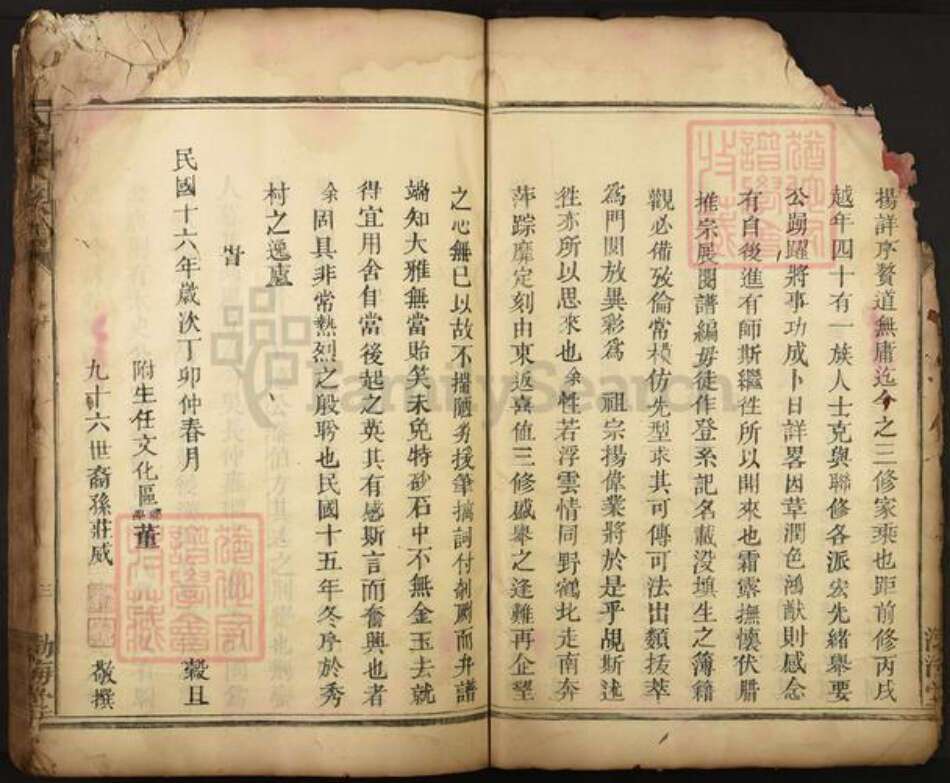 揚詳序贅道無庸迄今之三修家乘也距前修丙戌
越年四十有一族人士克與聯修各派宏先緒舉要
公踴躍將事功成卜日詳畧因草潤色鴻猷則感念
有自後進有師斯繼徃所以開來也霜露撫懷伏腊
推宗展閱譜編毋徒作登系記名載沒填生之簿籍
觀必備攷倫常楨仿先型求其可傳可法出類拔萃
為門閭放異彩為 祖宗揚偉業將於是乎覘斯述
徃亦所以思來也余性若浮雲情同野鶴北走南奔
萍踪靡定刻由東返喜值三修盛舉之逢難再企望
之心無已以故不揣陋劣援筆摛詞付剞劂而弁譜
端知大雅無當貽笑未免特砂石中不無金玉去就
得宜用舍自當後起之英其有感斯言而奮興也者
余固具非常熱烈之殷盼也民國十五年冬序於秀
村之逸廬
旹
民國十六年歲次丁卯仲春月 穀旦
附生任文化區董
九十六世裔孫莊威 敬撰
三
渤海堂
FamilySearch